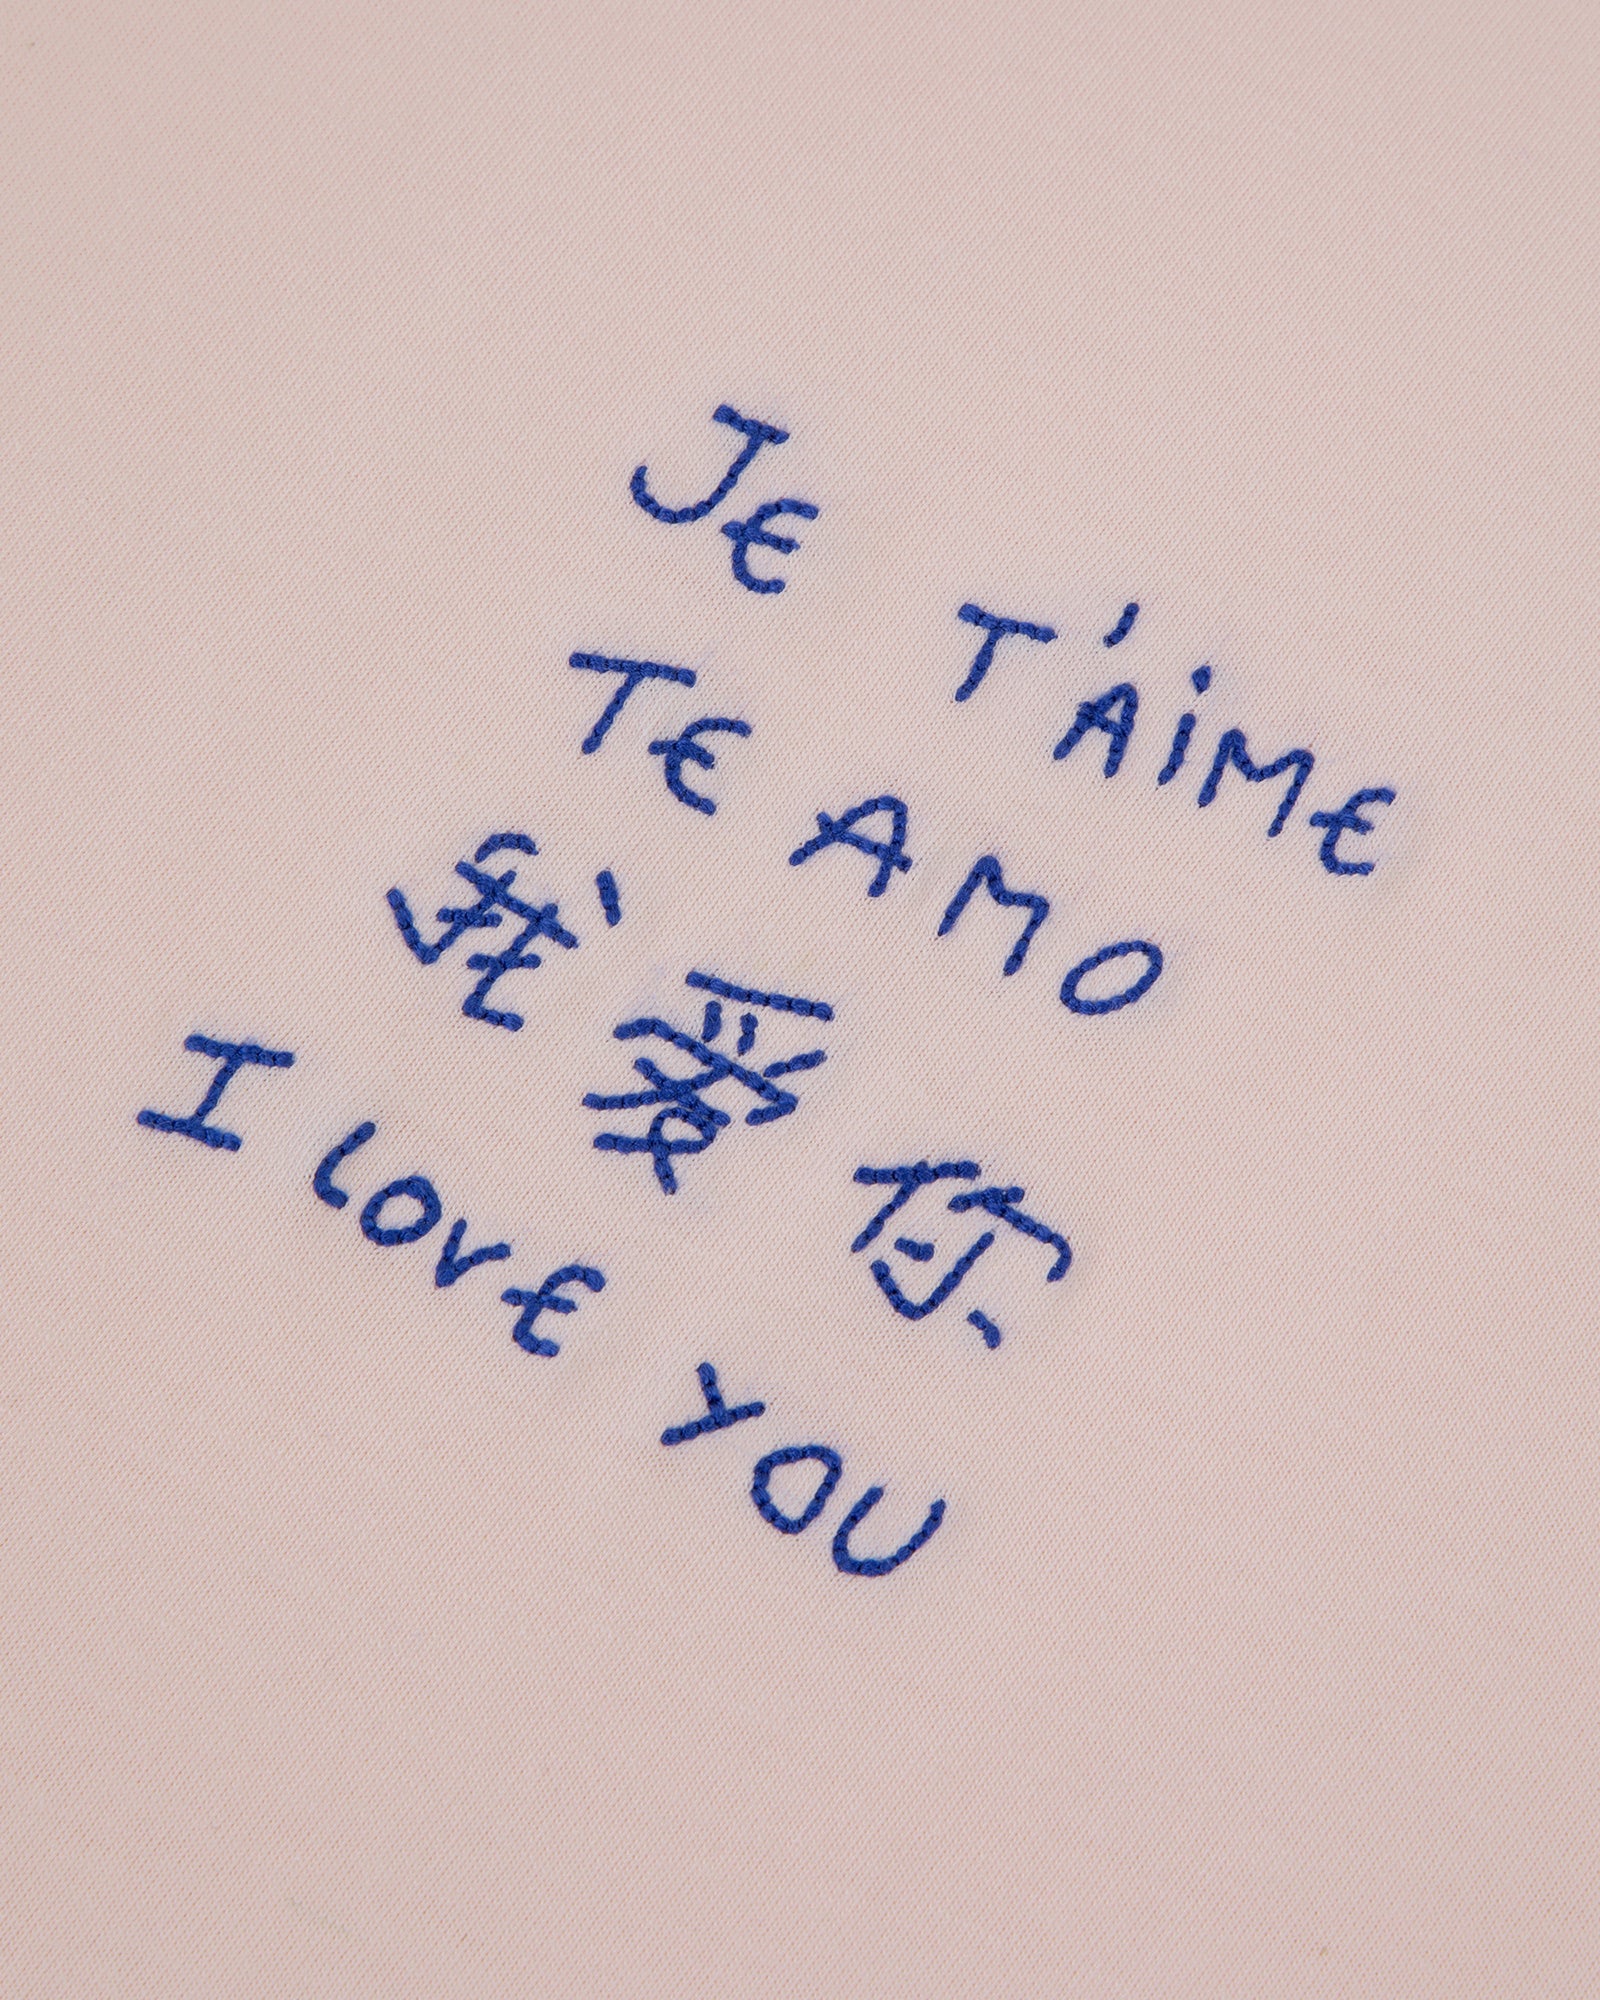 JE T'AiME
TE AMO
我爱你
I lOVE YOU